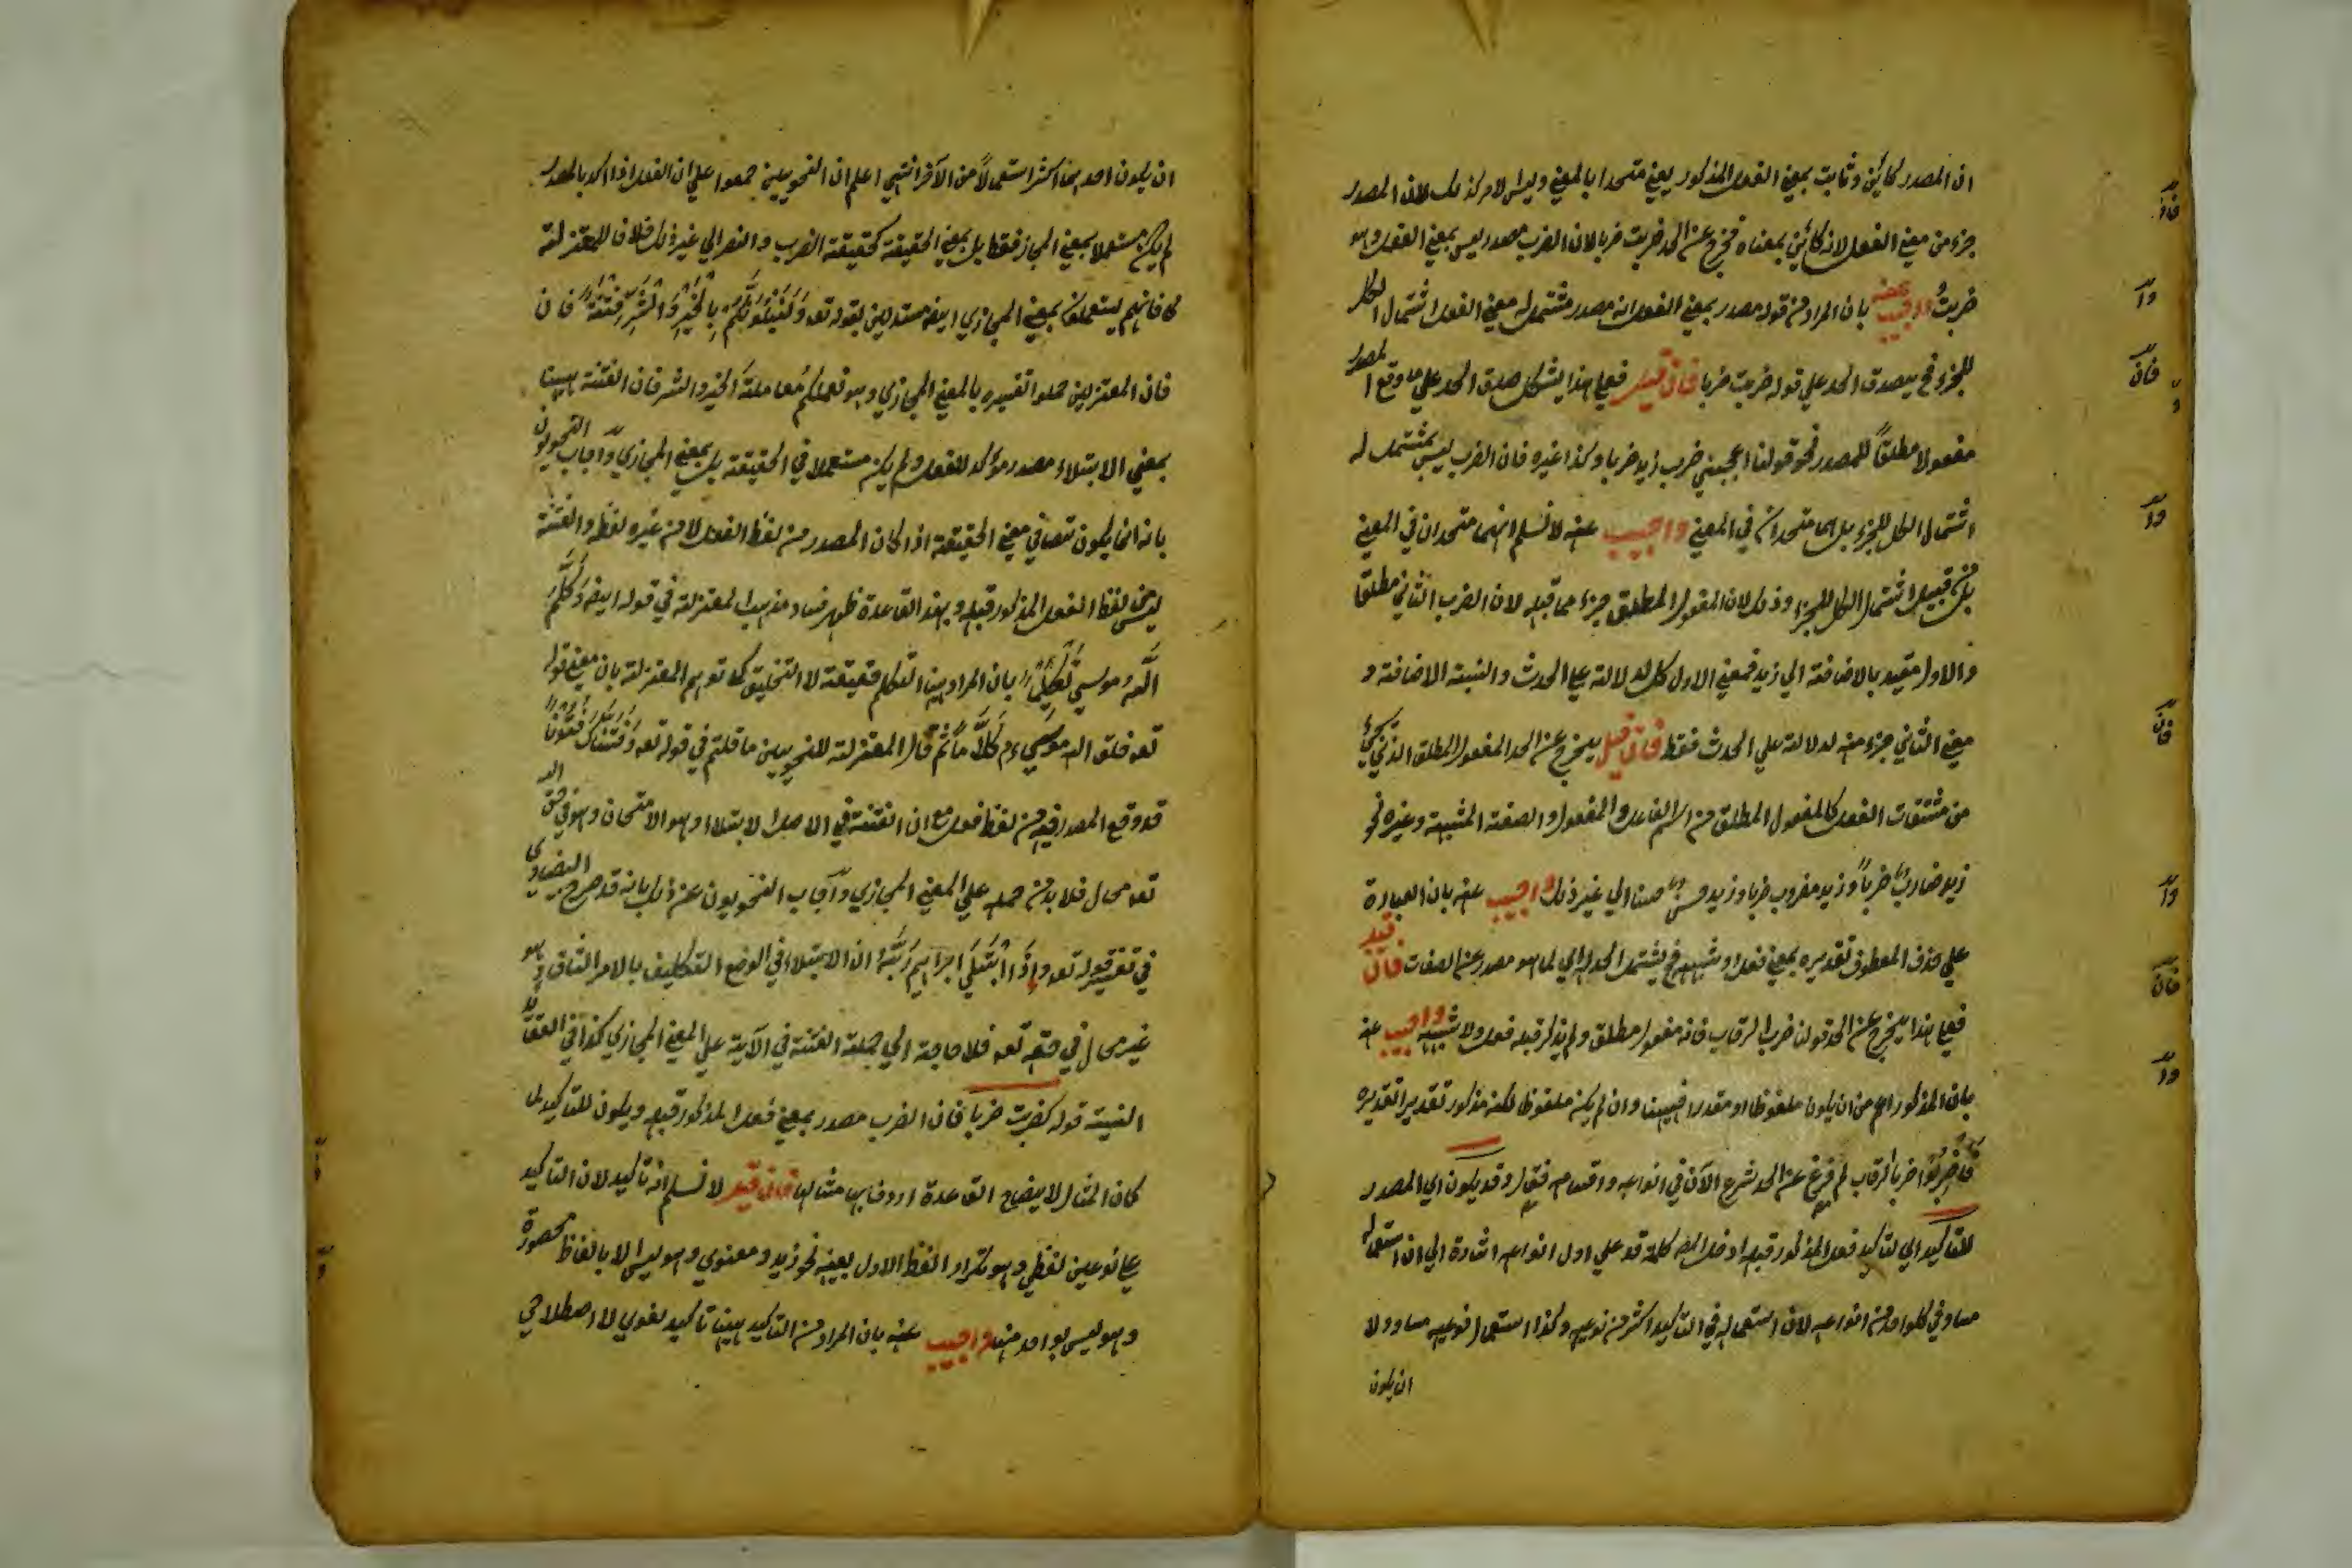 ان المصدر كائن وثابت بمعنى الفعل المذكور يعني متحدا بالمعنى وليس الامر كذلك لان المصدر
جزء من معنى الفعل لانه كائن بمعناه فخرج عن الحد ضربت ضربا لان الضرب مصدر ليس بمعنى الفعل وهو
ضربتُ واجيب عنه بان المراد من قوله مصدر بمعنى الفعل انه مصدر مشتمل له معنى الفعل اشتمال الكل
للجزء فح يصدق الحد على قوله ضربت ضربا فان قيل فعلى هذا يشكل صدق الحد على ما وقع المصدر
مفعولا مطلقاً للمصدر نحو قولنا اعجبني ضرب زيد ضربا وكذا غيره فان الضرب ليس بمشتمل له
اشتمال الكل للجزء بل هما متحدان في المعنى واجيب عنه لا نسلم انهما متحدان في المعنى
بل من قبيل اشتمال الكل للجزء وذلك لان المفعول المطلق جزء مما قبله لان الضرب الثاني مطلقا
والاول مقيد بالاضافة الي زيد فمعنى الاول كل له لدلالة على الحدث والنسبة الاضافة و
معنى الثاني جزء منه لدلالته علي الحدث فقط فان قيل يخرج عن الحد المفعول المطلق الذي يجيء
من مشتقات الفعل كالمفعول المطلق من اسم الفاعل والمفعول والصفة المشبهة وغيره نحو
زيد ضاربٌ ضرباً وزيد مضروب ضربا وزيد حسن حسنا الي غير ذلك واجيب عنه بان العبارة
علي حذف المعطوف تقديره بمعنى فعل او شبهه فح يشتمل الحد الي لما هو مصدر عن الصفات فان قيل
فعلى هذا يخرج عن الحد قولنا ضرب الرقاب فانه مفعول مطلق ولم يذكر قبله فعل ولا شبهه واجيب عنه
بان المذكور اعم من ان يكون ملفوظا او مقدرا فههنا وان لم يكن ملفوظا لكنه مذكور تقديرا تقديره
فاضربُوا ضرب الرقاب لم فرغ عن الحد شرع الآن في انواعه واقسامه فقال وقد يكون اي المصدر
للتاكيد الي لتاكيد فعل المذكور قبله ادخل المص كلمة قد علي اول انواعه اشارة الي ان استعماله
مساو في كل واحد من انواعه لان استعماله في التاكيد اكثر من نوعيه وكذا استعمال نوعيه مساو ولا
ان يكون
ان يكون احدهما اكثر استعمالاً من الآخر انتهى اعلم ان النحويين جمعوا علي ان الفعل اذا اكد بالمصدر
لم يكن مستعملا بمعنى المجاز فقط بل بمعنى الحقيقة كحقيقة الضرب والنصر الي غير ذلك خلافا للمعتزلة
فانهم يستعملون بمعنى المجازي ايضا مستدلين بقوله تعه وَلَنَبْلُوَنَّكُمْ بِالْخَيْرِ وَالشَّرِّ فِتْنَةً فان
فان المعتزلين حملوا تفسيره بالمعنى المجازي وهو نعاملكم مُعاملةَ الخير والشر فان الفتنة ههنا
بمعنى الابتلاء مصدر مؤكد للفعل ولم يكن مستعملا في الحقيقة بل بمعنى المجازي واجاب النحويون
بانه انما يكون نصا في معنى الحقيقة اذا كان المصدر من لفظ الفعل لا من غيره لفظه والفتنة
ليس من لفظ الفعل المذكور قبله وبهذا القاعدة ظهر فساد مذهب المعتزلة في قوله ايضا وَكَلَّمَ
اللّٰهُ موسي تَكْلِيْمًا بان المراد ههنا التكلم حقيقة لا التخليق كما توهم المعتزلة بان معنى قوله
تعه خلق الله موسيٰ عم كَلَاماً ثم قال المعتزلة للنحويين ما قلتم في قوله تعه وَفَتَنَّاكَ فُتُوْنًا
قد وقع المصدر فيه من لفظ فعله مع ان الفتنة في الاصل الابتلاء وهو الامتحان وهو في حق الله
تعه محال فلا بد من حمله علي المعنى المجازي واجاب النحويون عن ذلك بانه قد صرح البيضاوي
في تفسير قوله تعه وإِذَا ابْتَلَى ابراهيم رَبُّهُ ان الابتلاء في الوضع التكليف بالامر الشاق وهو
غير محال في حقه تعه فلا حاجة الي حملة الفتنة في الآية علي المعنى المجازي كذا في العقائد
النسفية قوله كضربت ضربا فان الضرب مصدر بمعنى فعل المذكور قبله ويكون للتاكيد لما
كان المثال لايضاح القاعدة اردفها مثالها فان قيل لا نسلم انه تاكيد لان التاكيد
على نوعين لفظي وهو تكرار اللفظ الاول بعينه نحو زيد ومعنوي وهو ليس الا بالفاظ محصورة
وهو ليس بواحد منهما واجيب عنه بان المراد من التاكيد ههنا تاكيد لغوي لا اصطلاحي